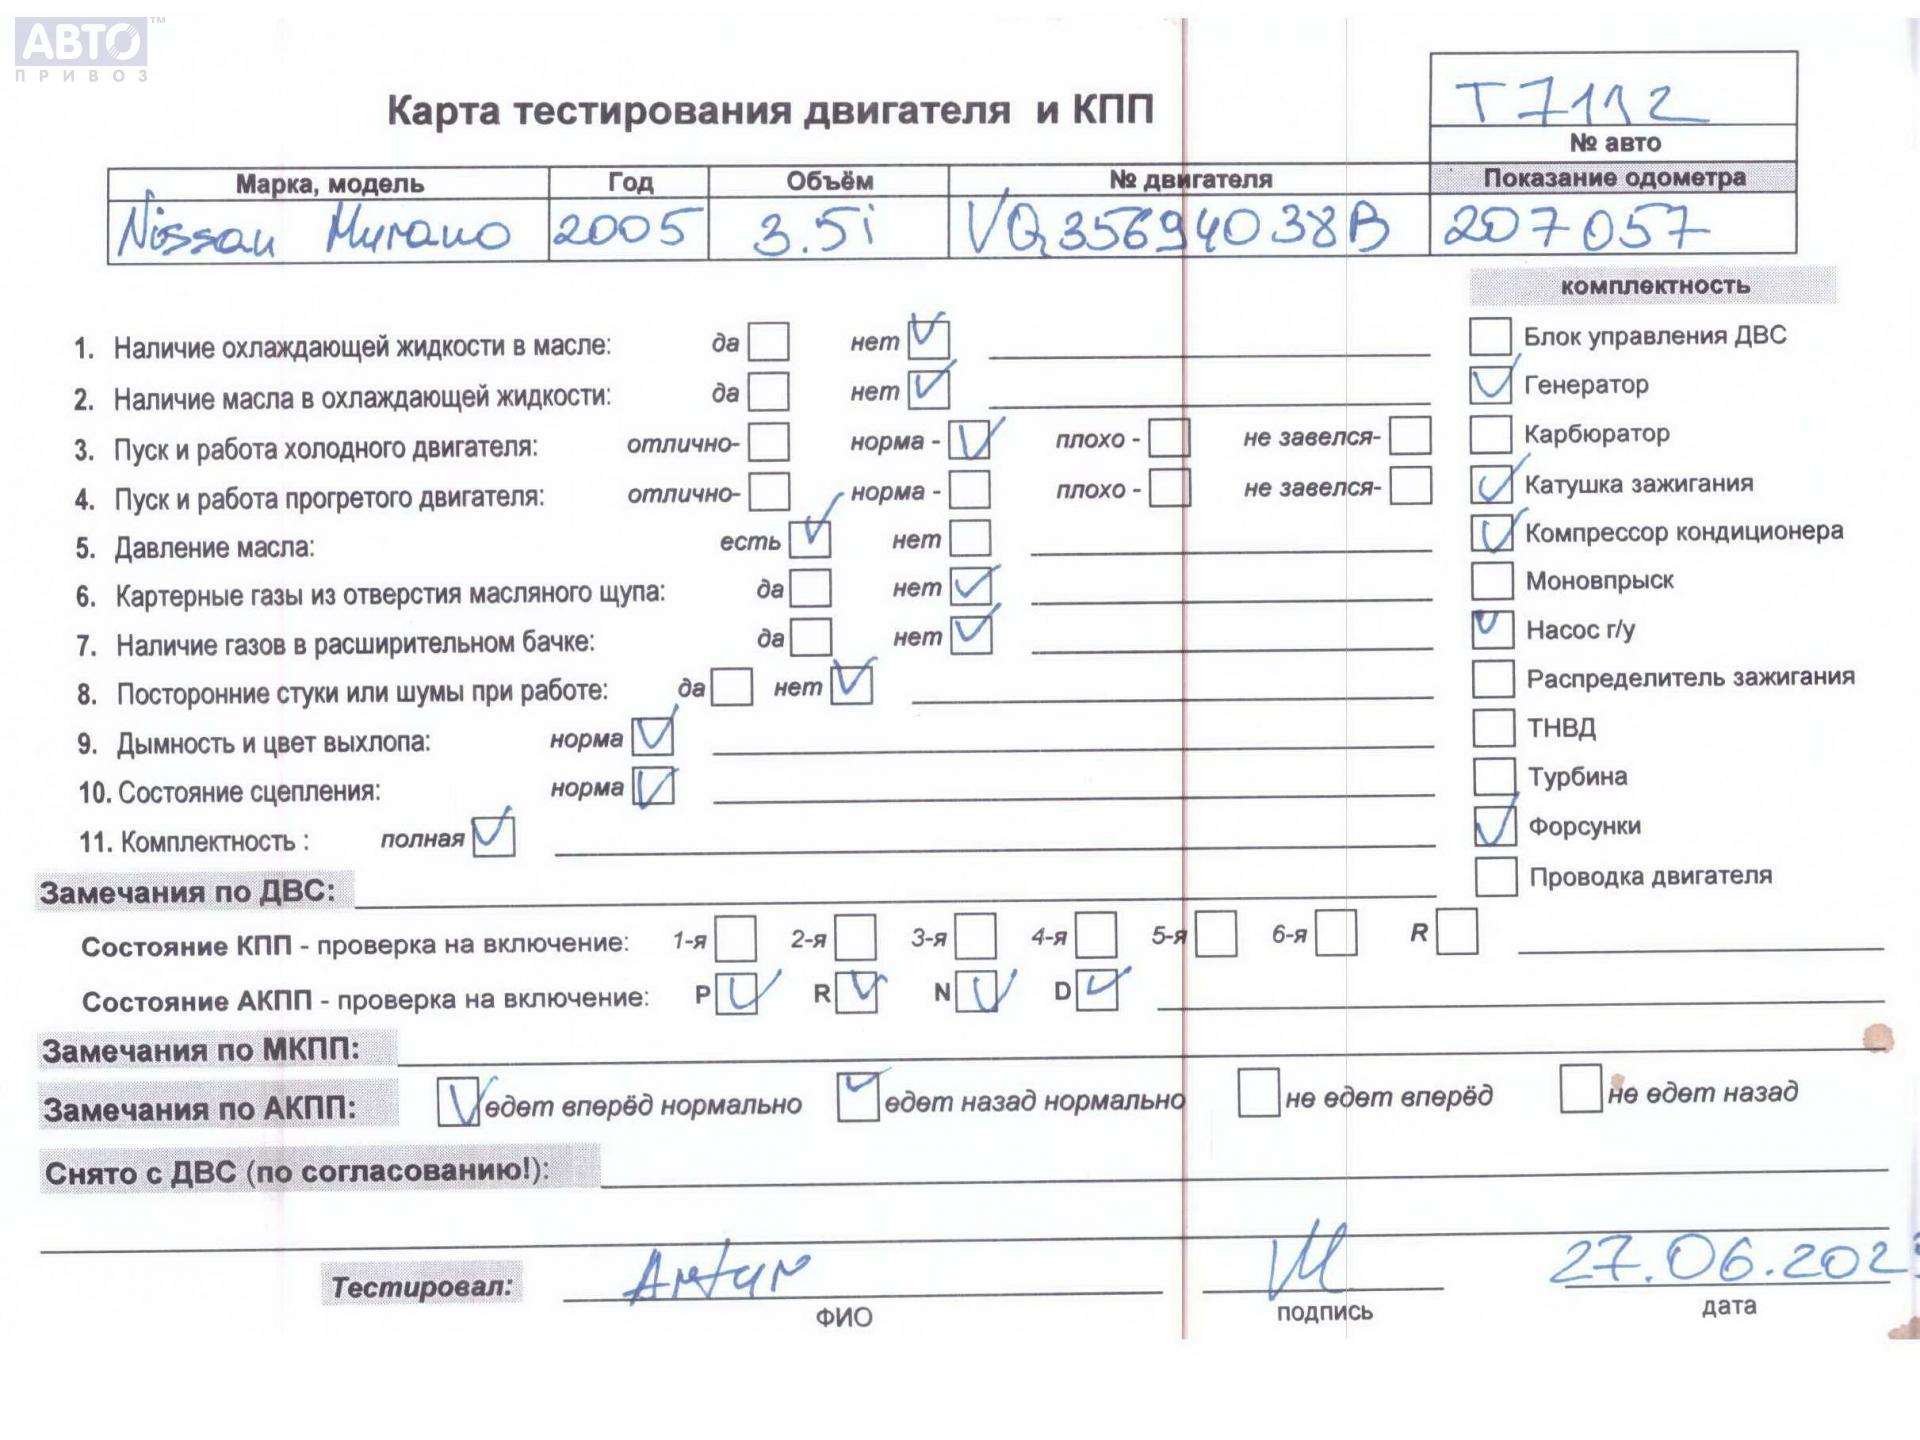 АВТО™
ПРИВОЗ
Карта тестирования двигателя и КПП
T7112
№ авто
Марка, модель Год Объём № двигателя Показание одометра
Nissan Murano 2005 3.5i VQ35694038B 207057
комплектность
1. Наличие охлаждающей жидкости в масле: да нет Блок управления ДВС
2. Наличие масла в охлаждающей жидкости: да нет Генератор
3. Пуск и работа холодного двигателя: отлично- норма - плохо - не завелся- Карбюратор
4. Пуск и работа прогретого двигателя: отлично- норма - плохо - не завелся- Катушка зажигания
5. Давление масла: есть нет Компрессор кондиционера
6. Картерные газы из отверстия масляного щупа: да нет Моновпрыск
7. Наличие газов в расширительном бачке: да нет Насос г/у
8. Посторонние стуки или шумы при работе: да нет Распределитель зажигания
9. Дымность и цвет выхлопа: норма ТНВД
10. Состояние сцепления: норма Турбина
11. Комплектность : полная Форсунки
Замечания по ДВС: Проводка двигателя
Состояние КПП - проверка на включение: 1-я 2-я 3-я 4-я 5-я 6-я R
Состояние АКПП - проверка на включение: P R N D
Замечания по МКПП:
Замечания по АКПП: едет вперёд нормально едет назад нормально не едет вперёд не едет назад
Снято с ДВС (по согласованию!):
Тестировал: Artur 27.06.2023
ФИО подпись дата